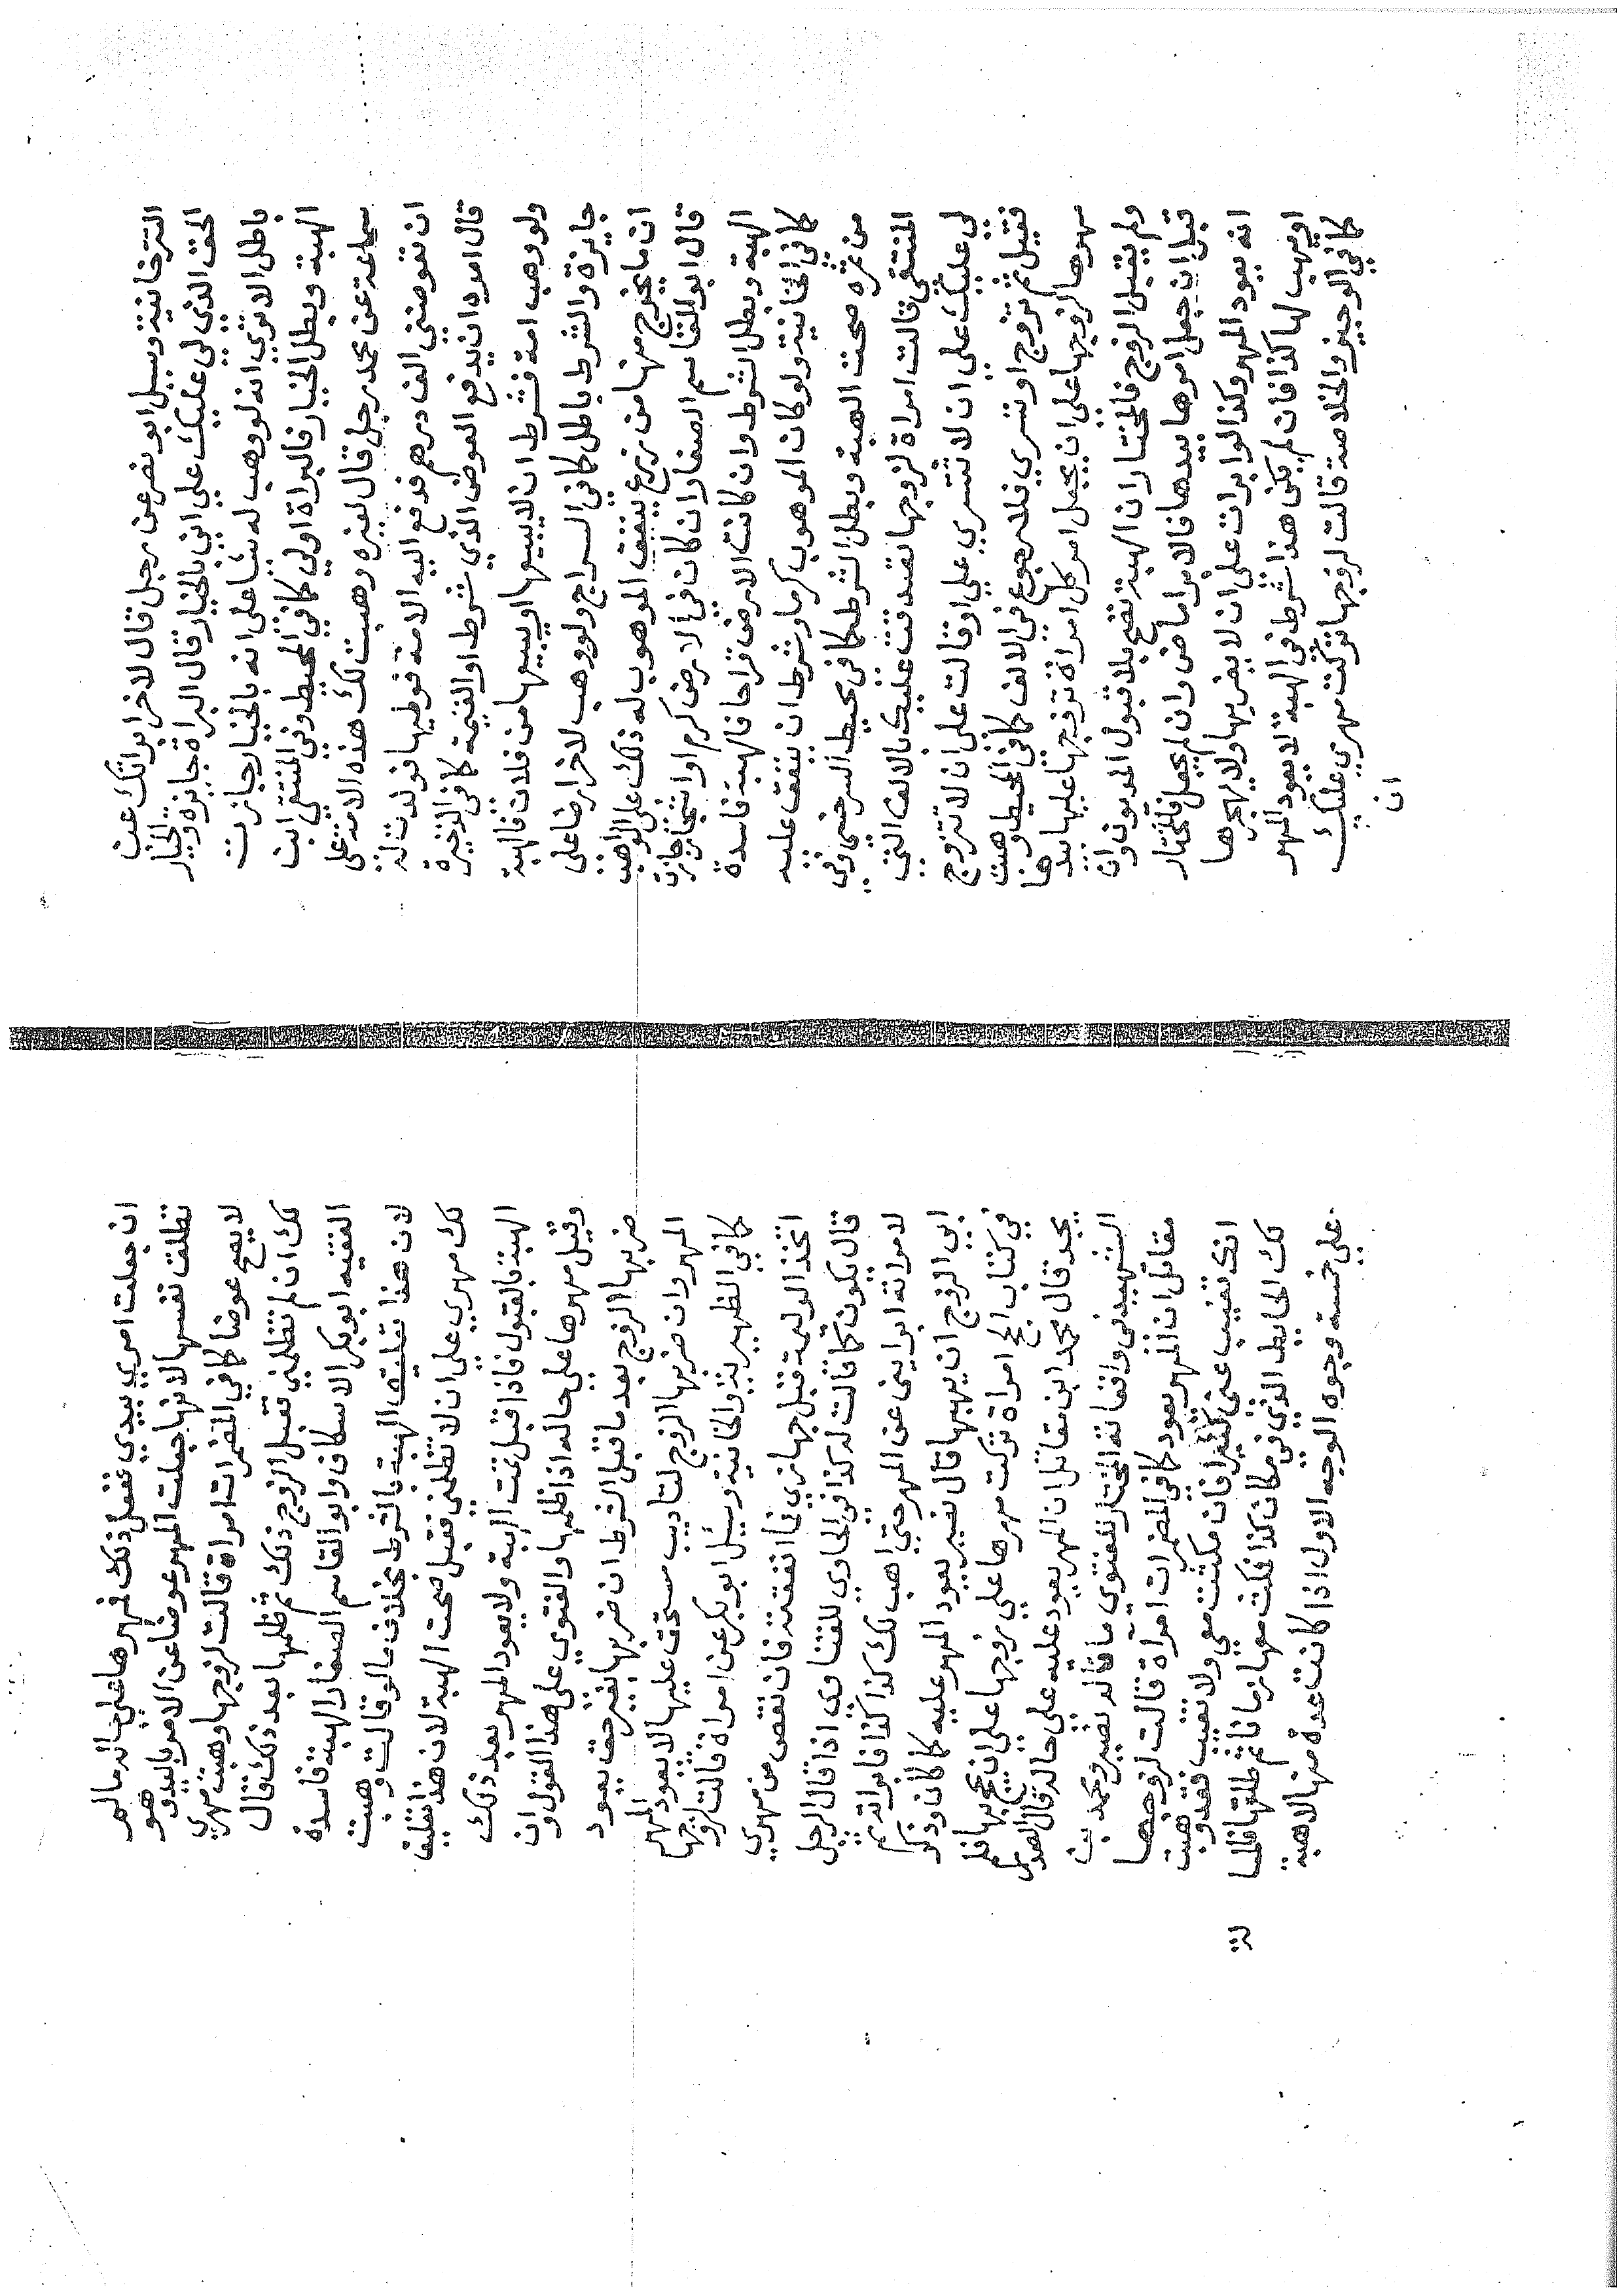 التترخانية وسيل ابو نصر عن رجل قال لاخر ابراتك عن
الحق الذي لي عليك علي اني بالخيار قال البراة جايزة والخيار
باطل الا تري انه لو وهب له شيا على انه بالخيار جازت
الهبة وبطل الخيار فالبراة اولي كما في المحيط وفي المنتقي ابن
سماعة عن محمد رجل قال لغيره وهبت لك هذه الامة علي
ان تعوضني الف درهم فدفع اليه الامة فوطيها فولدت له
قال امره ان يدفع العوض الذي شرط او القيمة كما في الذخيرة
ولو وهب امة فشرط ان لا يبيعها او يبيعها من فلان فالهبة
جايزة والشرط باطل كما في السراج ولو وهب لاخر ارضا على
ان ما يخرج منها من زرع ينفق الموهوب له ذلك على الواهب
قال ابو القاسم الصفار ان كان في الارض كرم او اشجار جازت
الهبة وبطل الشرط وان كانت الارض قراحا فالهبة فاسدة
كما في الخانية ولو كان الموهوب كرما وشرط ان ينفق عليه
من ثمره صحت الهبة وبطل الشرط كما في محيط السرخسي وفي
المنتقى قالت امراة لزوجها تصدقت عليك بالالف التي
لي عليك علي ان لا تتسري علي او قالت على ان لا تتزوج
فقبل ثم تزوج او تسري فلا رجوع في الالف كما في المحيط وهبت
مهرها لزوجها على ان يجعل امر كل امراة تزوجها عليها بيدها
ولم يقبل الزوج فالمختار ان الهبة تصح بلا قبول المديون وان
قبل ان جعل امرها بيدها فالابرا ماض وان لم يجعل فالمختار
انه يعود المهر وكذا لو ابرات على ان لا يضربها ولا يهجرها
او يهب لها كذا فان لم يكن هذا شرط في الهبة لا يعود المهر
كما في الوجيز والخلاصة قالت لزوجها تركت مهري عليك
ان
ان جعلت امري بيدي ففعل ذلك فمهرها علي حاله ما لم
تطلق نفسها لانها جعلت المهر عوضا عن الامر باليد وهو
لا يصح عوضا كما في المضمرات امراة قالت لزوجها وهبت مهري
لك ان لم تظلمني تقبل الزوج ذلك ثم ظلمها بعد ذلك قال
الفقيه ابو بكر الاسكاف وابو القاسم الصفار الهبة فاسدة
لان هذا تعليق الهبة بالشرط بخلاف ما لو قالت وهبت
لك مهري علي ان لا تظلمني فقبل صحت الهبة لان هذا تعليق
الهبة بالقبول فاذا قبل تمت الهبة ولا يعود المهر بعد ذلك
وقيل مهرها على حاله اذا ظلمها والفتوي على هذا القول وان
ضربها الزوج بعد ما قبل الشرط ان ضربها بغير حق يعود
المهر وان ضربها الزوج لتاديب مستحق عليها لا يعود المهر
كما في الظهيرية والخانية وسيل ابو بكر عن امراة قالت لزوجها
اتخذ الوليمة قبل جهازي فما انفقت فان نقص من مهري
قال يكون كما قالت له كذا في الحاوي للفتاوي اذا قال الرجل
لامراته ابرايني عن المهر حتي اهب لك كذا كذا فابراته ثم
ابي الزوج ان يهبها قال نصير يعود المهر عليه كما كان وذكر
في كتاب الحج امراة تركت مهرها علي زوجها علي ان يحج بها فلم
يحج قال محمد ابن مقاتل ان المهر يعود عليه علي حاله قال الصدر
الشهيد في واقعاته المختار للفتوي ما قاله نصير ومحمد بن
مقاتل ان المهر يعود كما في المضمرات امراة قالت لزوجها
انك تغيب عني كثيرا فان مكثت معي ولا تغيب فقد وهبت
لك الحايط الذي في مكان كذا فمكث معها زمانا ثم طلقها فالمسألة
علي خمسة وجوه الوجه الاول اذا كانت عدة منها لا هبة